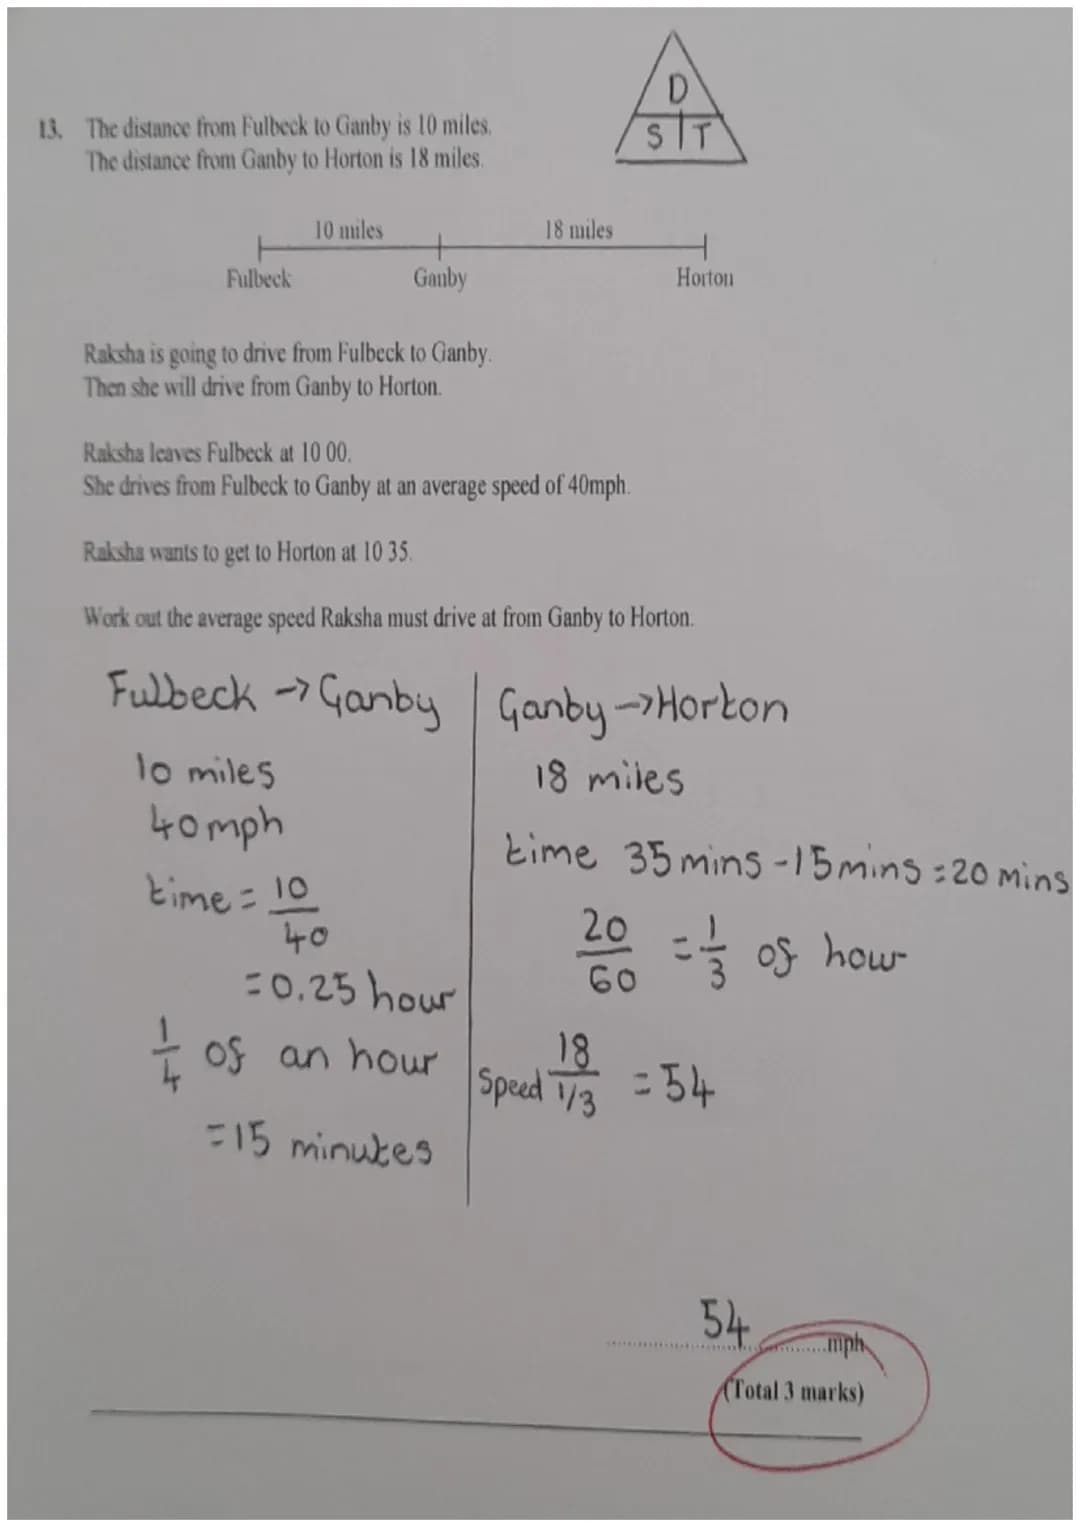 D
S T
13. The distance from Fulbeck to Ganby is 10 miles.
The distance from Ganby to Horton is 18 miles.
10 miles 18 miles
Fulbeck Ganby Horton
Raksha is going to drive from Fulbeck to Ganby.
Then she will drive from Ganby to Horton.
Raksha leaves Fulbeck at 10 00.
She drives from Fulbeck to Ganby at an average speed of 40mph.
Raksha wants to get to Horton at 10 35.
Work out the average speed Raksha must drive at from Ganby to Horton.
Fulbeck -> Ganby
10 miles
40mph
time = 10/40
= 0.25 hour
1/4 of an hour
= 15 minutes
Ganby -> Horton
18 miles
time 35 mins - 15 mins = 20 mins
20/60 = 1/3 of hour
Speed 18/1/3 = 54
54 mph
(Total 3 marks)